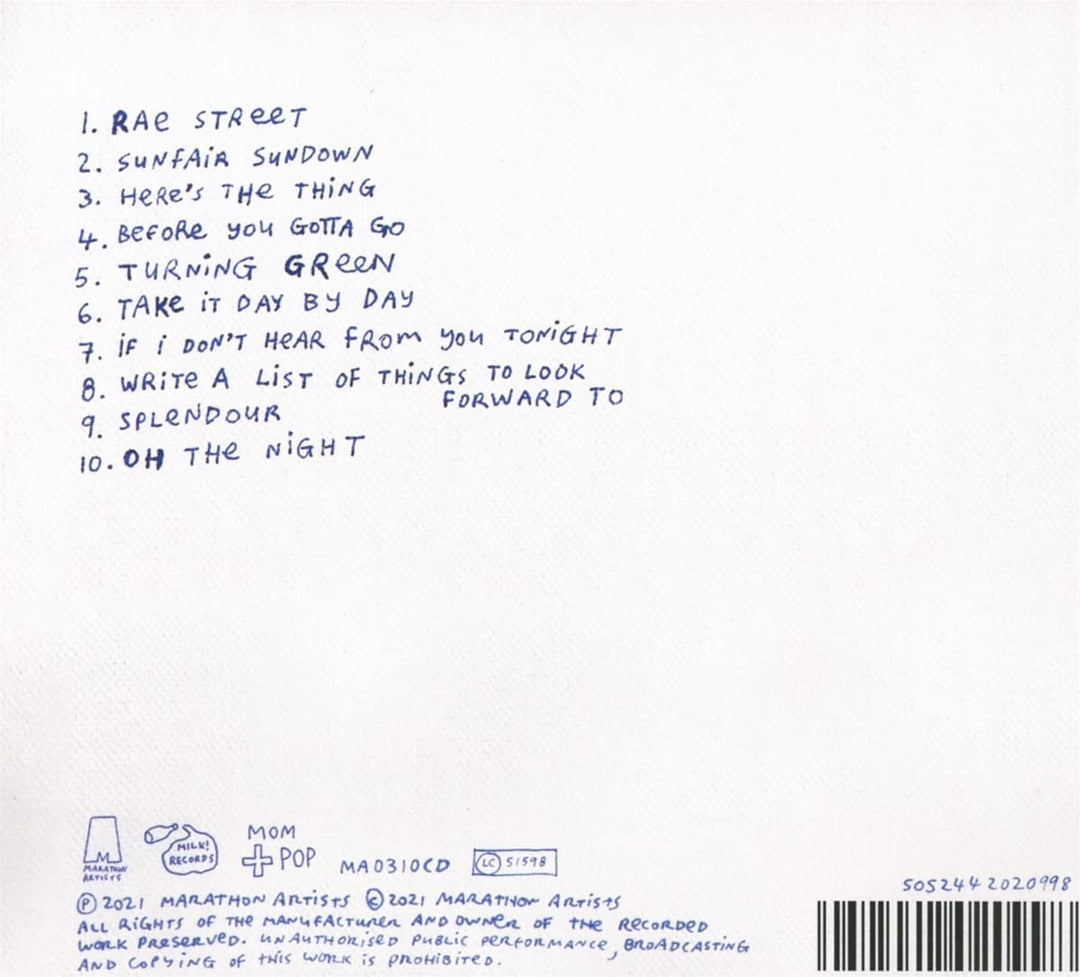 1. RAe STReeT
2. SUNFAiR SUNDOWN
3. HeRe'S THe THiNG
4. BeFoRe you GOTTA GO
5. TURNiNG GReeN
6. TAKe iT DAY BY DAY
7. iF i DON'T HeAR FROm you TONiGHT
8. WRiTe A LiST OF THiNGS TO LOOK
FORWARD TO
9. SPLeNDOUR
10. OH THe NiGHT
M
MARATHON
ARTiSTS
MiLK!
RECORDS
MOM
+POP
MA0310CD
LC 51598
5052442020998
Ⓟ 2021 MARATHON ARTiSTS © 2021 MARATHON ARTiSTS
ALL RiGHTS OF THE MANUFACTURER AND OWNeR OF THE RECORDED
WORK PReSeRVeD. UNAUTHORiSED PUBLiC PERFORMANCE, BROADCASTiNG
AND COPYiNG OF THiS WORK iS PROHiBiTED.